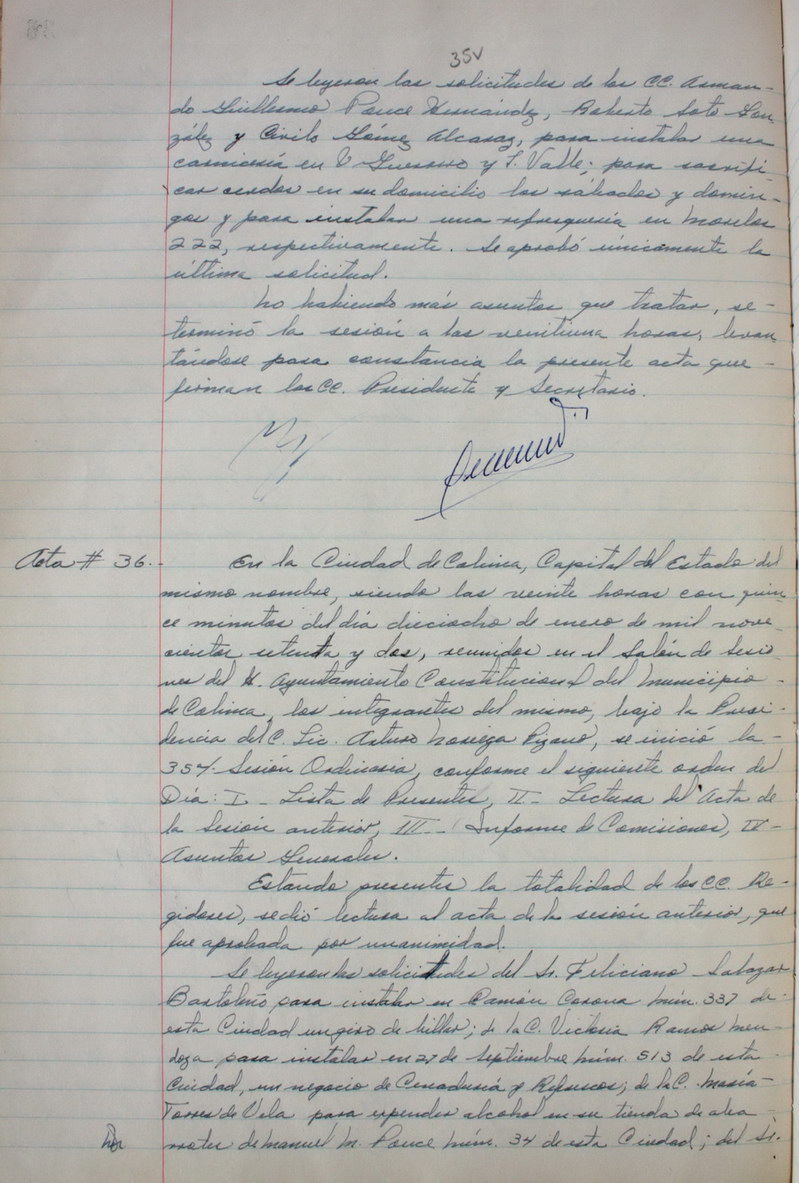 35v
Se leyeron las solicitudes de los CC. Arman-
do Guillermo Ponce Hernández, Roberto Soto Gon-
zález y Cirilo Gómez Alcaraz, para instalar una
carnicería en V. Guerrero y F. Valle; para sacrifi-
car cerdos en su domicilio los sábados y domin-
gos y para instalar una refresquería en Morelos
222, respectivamente. Se aprobó únicamente la
última solicitud.
No habiendo más asuntos que tratar, se-
terminó la sesión a las veintiuna horas, levan
tándose para constancia la presente acta que-
firman los CC. Presidente y Secretario.
Acta # 36.- En la Ciudad de Colima, Capital del Estado del
mismo nombre, siendo las veinte horas con quin-
ce minutos del día dieciocho de enero de mil nove-
cientos setenta y dos, reunidos en el Salón de Sesio-
nes del H. Ayuntamiento Constitucional del Municipio-
de Colima, los integrantes del mismo, bajo la Presi-
dencia del C. Lic. Arturo Noriega Pizano, se inició la-
35a. Sesión Ordinaria, conforme el siguiente orden del
Día: I.- Lista de Presentes, II.- Lectura del Acta de
la Sesión anterior, III.- Informe de Comisiones, IV-
Asuntos Generales.
Estando presentes la totalidad de los CC. Re-
gidores, se dió lectura al acta de la sesión anterior, que
fue aprobada por unanimidad.
Se leyeron las solicitudes del Sr. Feliciano Salazar
Bartolo para instalar en Ramón Corona Núm. 337 de-
esta Ciudad un giro de billar; de la C. Victoria Ramos Men-
doza para instalar en 27 de Septiembre Núm. 513 de esta
Ciudad, un negocio de Cenaduría y Refrescos; de la C. María-
Torres de Vela para expender alcohol en su tienda de aba-
rrotes de Manuel M. Ponce Núm. 34 de esta Ciudad; del Sr.